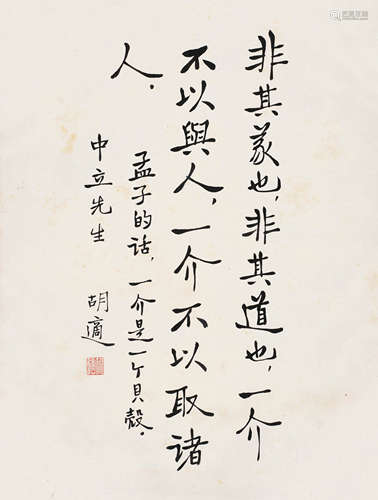 非其義也,非其道也,一介
不以與人,一介不以取諸
人.
孟子的话,一介是一个貝殼.
中立先生
胡適